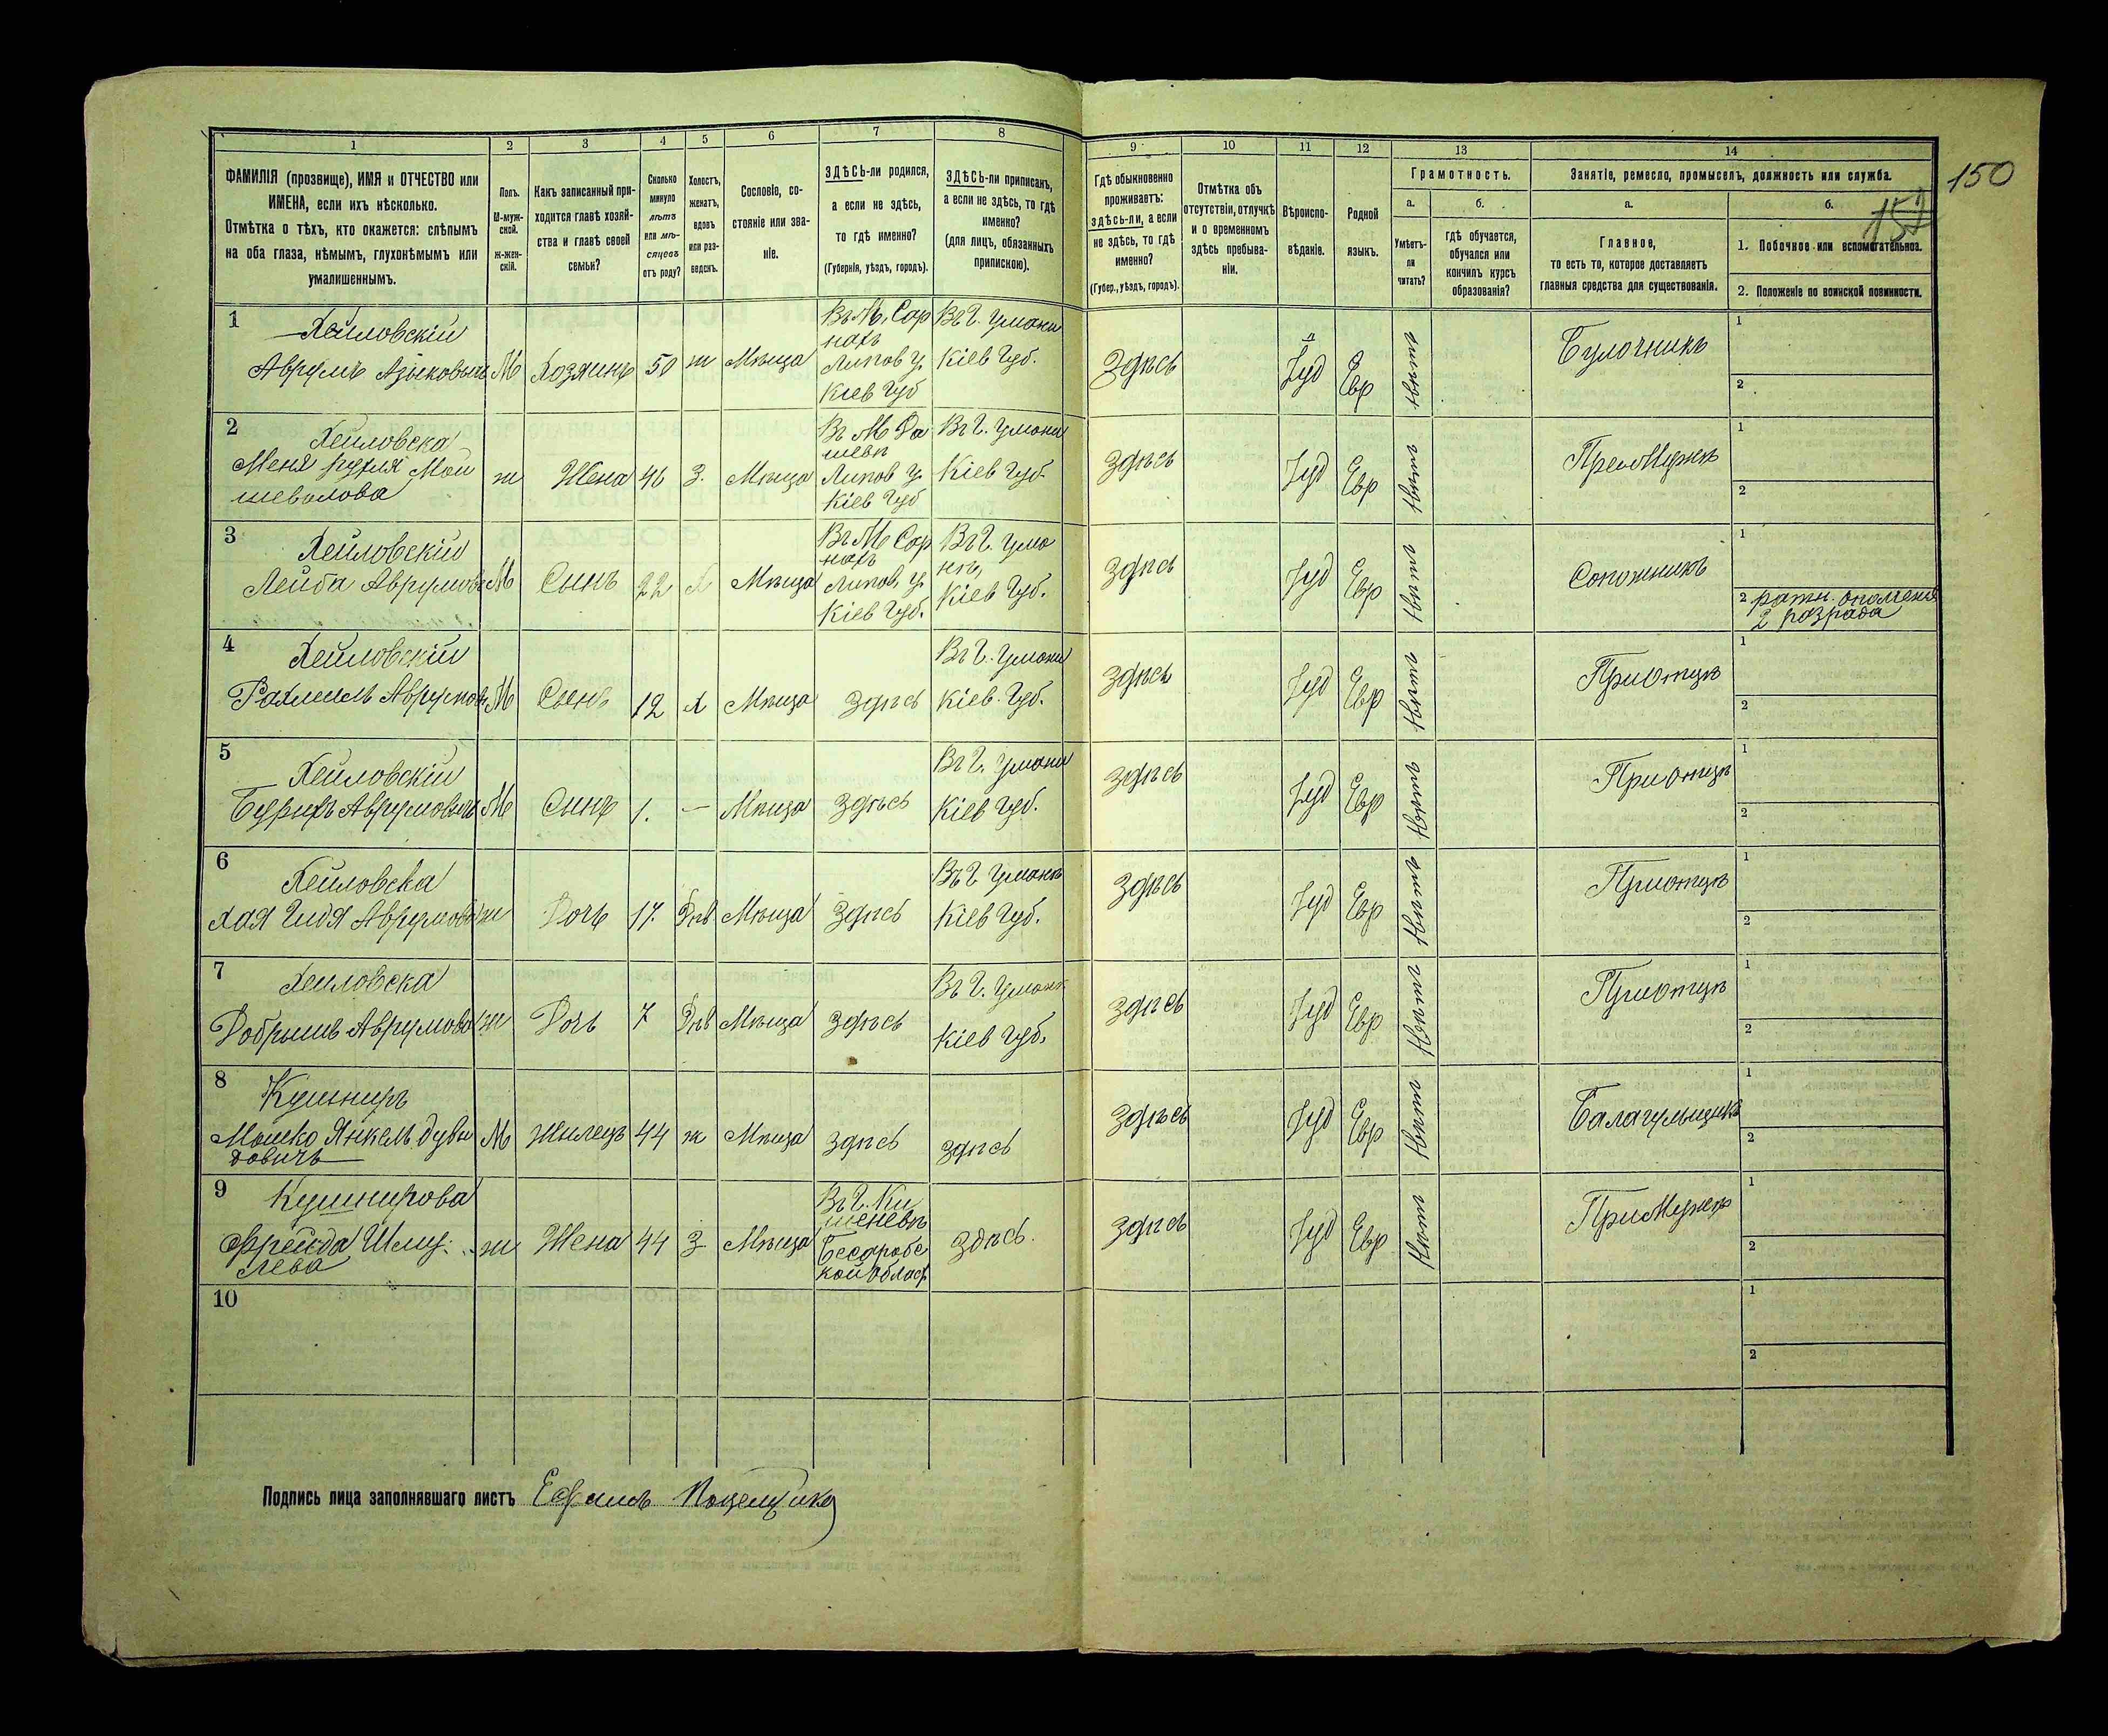 1 2 3 4 5 6 7 8 9 10 11 12 13 14
ФАМИЛІЯ (прозвище), ИМЯ и ОТЧЕСТВО или
ИМЕНА, если ихъ нѣсколько.
Отмѣтка о тѣхъ, кто окажется: слѣпымъ
на оба глаза, нѣмымъ, глухонѣмымъ или
умалишеннымъ.
Полъ.
М-муж-
ской.
ж-жен-
скій.
Какъ записанный при-
ходится главѣ хозяй-
ства и главѣ своей
семьи?
Сколько
минуло
лѣтъ
или мѣ-
сяцевъ
отъ роду?
Холостъ,
женатъ,
вдовъ
или раз-
ведснъ.
Сословіо, со-
стояніе или зва-
ніе.
ЗДѢСЬ-ли родился,
а если не здѣсь,
то гдѣ именно?
(Губернія, уѣздъ, городъ).
ЗДѢСЬ-ли приписанъ,
а если не здѣсь, то гдѣ
именно?
(для лицъ, обязанныхъ
припискою).
Гдѣ обыкновенно
проживаетъ:
здѣсь-ли, а если
не здѣсь, то гдѣ
именно?
(Губер., уѣздъ, городъ).
Отмѣтка объ
отсутствіи, отлучкѣ
и о временномъ
здѣсь пребыва-
ніи.
Вѣроиспо-
вѣданіе.
Родной
языкъ.
Грамотность.
а. б.
Умѣетъ-
ли
читать?
гдѣ обучается,
обучался или
кончилъ курсъ
образованія?
Занятіе, ремесло, промыселъ, должность или служба.
а. б.
Главное,
то есть то, которое доставляетъ
главныя средства для существованія.
1. Побочное или вспомогательное.
2. Положеніе по воинской повинности.
150
1 Хейловскій
Аврумъ Азыковычъ М Хозяинъ 50 ж Мѣща
Въ М. Сар
нахъ
Липов у.
Кіев Губ
Въ Г. Умани
Кіев Губ.
Здѣсь Іуд Евр Нѣтъ Булочникъ 1
2
2 Хейловска
Меня Рухля Мой
шеволова ж Жена 46 З. Мѣща
Въ М Да
шевѣ
Липов у.
Кіев Губ
Въ Г. Умани
Кіев Губ.
здѣсь Іуд Евр Нѣтъ ПреоМужѣ 1
2
3 Хейловскій
Лейба Аврумовъ М Сынъ 22 Х Мѣща
Въ М Сар
нахъ
Липов. у.
Кіев Губ.
Въ Г. Ума
нѣ,
Кіев Губ.
здѣсь Іуд Евр Нѣтъ Сопожникъ 1
2 ратн. ополченія
2 разрада
4 Хейловскій
Рахмиель Аврумовъ М Сынъ 12 х Мѣща здѣсь
Въ Г. Умани
Кіев. Губ.
здѣсь Іуд Евр Нѣтъ Приотцѣ 1
2
5 Хейловскій
Аврумовычъ М Сынъ 1. — Мѣща здѣсь
Въ Г. Умани
Кіев Губ.
здѣсь Іуд Евр Нѣтъ Приотцѣ 1
2
6 Хейловска
Хая Гидя Аврумова ж Дочь 17. Дѣв Мѣща здѣсь
Въ Г Умани
Кіев Губ.
здѣсь Іуд Евр Нѣтъ Приотцѣ 1
2
7 Хейловска
Добрышъ Аврумова ж Дочь 7 Дѣв Мѣща здѣсь
Въ Г. Умани
Кіев Губ.
здѣсь Іуд Евр Нѣтъ Приотцѣ 1
2
8 Кушниръ
Мошко Янкель Дуви
довичъ М Жылецъ 44 ж Мѣща здѣсь здѣсь здѣсь Іуд Евр Нѣтъ Балагульщикъ 1
2
9 Кушнирова
Фрейда Шму:
лева ж Жена 44 З Мѣща
Въ Г. Ки
шеневѣ
Бесарабс
кой Област
здѣсь. здѣсь Іуд Евр Нѣтъ ПриМужѣ 1
2
10 1
2
Подпись лица заполнявшаго листъ